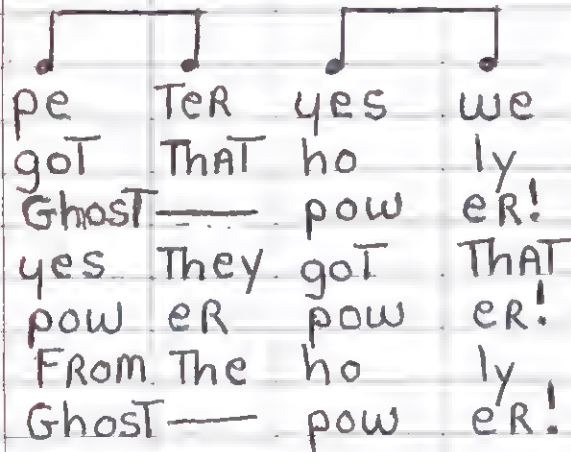 pe TeR yes we
goT ThAT ho ly
GhosT — pow eR!
yes They goT ThAT
pow eR pow eR!
FRom The ho ly
GhosT — pow eR!